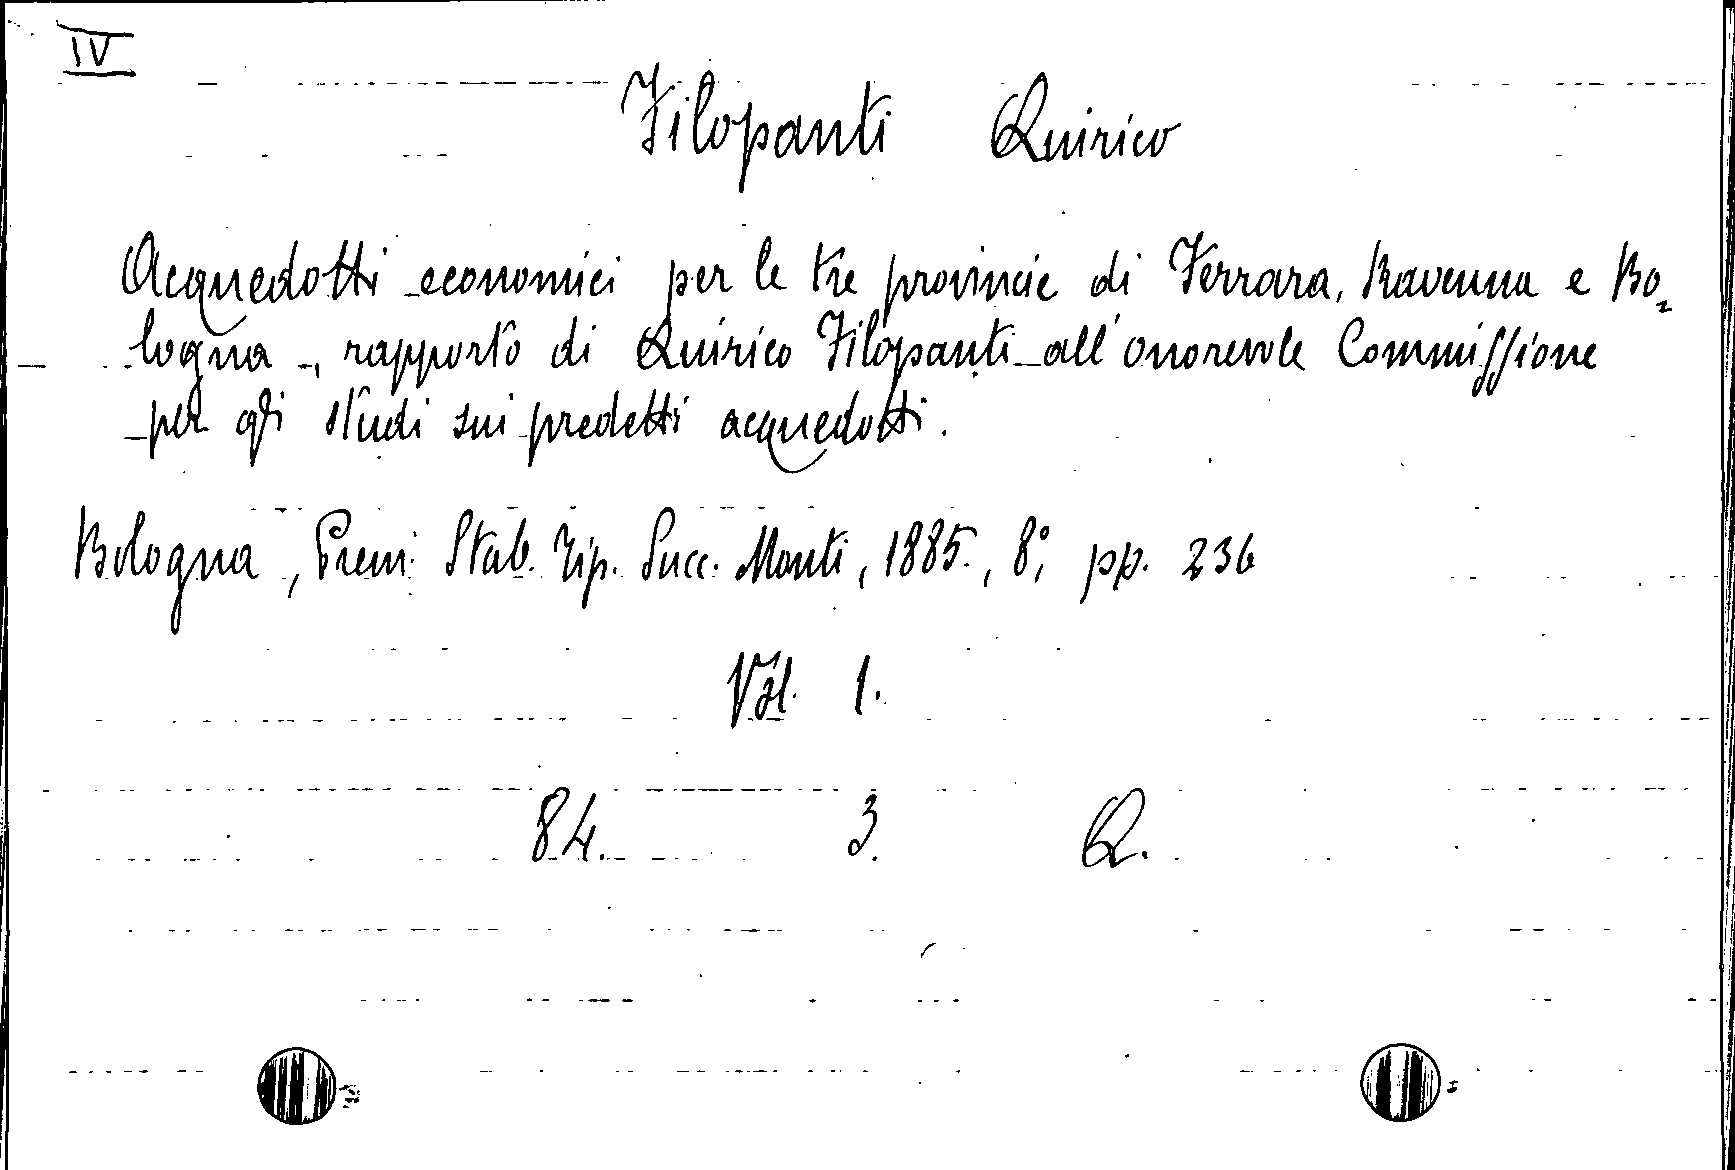 IV
Filopanti Quirico
Acquedotti economici per le tre provincie di Ferrara, Ravenna e Bo=
logna, rapporto di Quirico Filopanti all'onorevole Commissione
per gli studi sui predetti acquedotti.
Bologna, Prem. Stab. Tip. Succ. Monti, 1885., 8°, pp. 236
Vol. 1.
84. 3. Q.